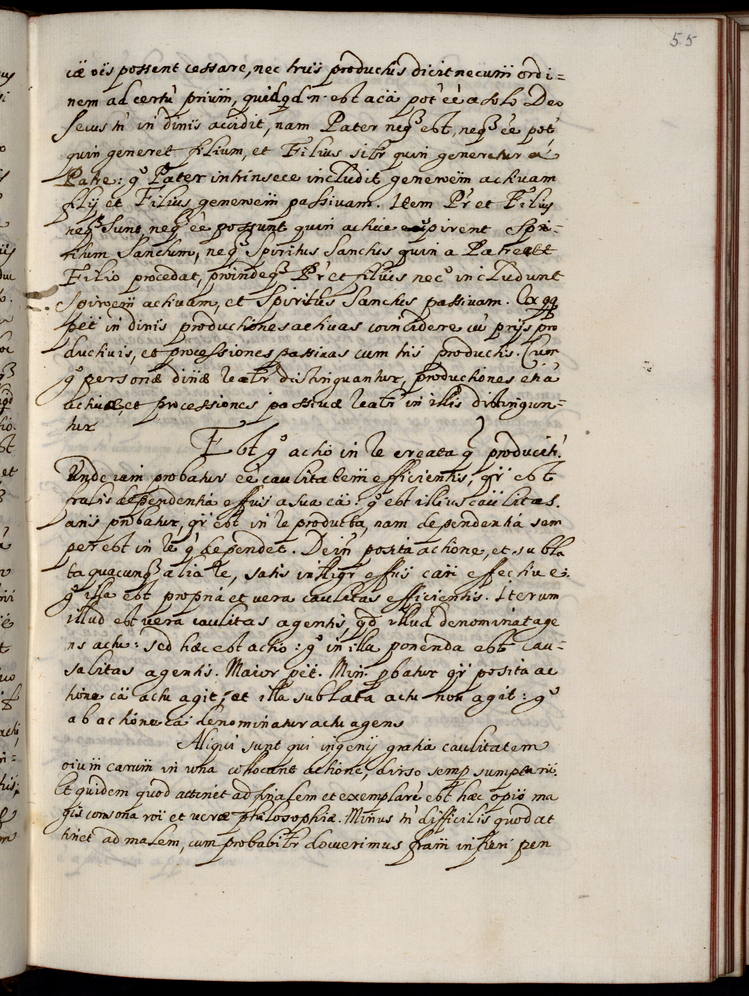 55
cæ oīs possent cessare, nec trīis productīs dicit necum̄ ordi=
nem ad certū prium̄, quidq̄d n̄ est acā pot' eē a solo Deo
secus tn̄ in dīnis accidit, nam Pater neq3 est, neq3 eē pot'
quin generet filium, et Filius sil̄r quin generetur a
Patre: gº Pater intrinsece includit gener̄oem̄ activam
filij et Filius gener̄oem̄ passivam. Item P̄r et Filius
neq3 sunt, neq3 eē possunt quin active spirent Spi=
ritum Sanctum, neq3 Spiritus Sanctus quin a Patre et
Filio procedat, proindeq3 P̄r et filius nec.º includunt
Spir̄oem̄ activam, et Spiritus Sanctus passivam. Ex qq
pēt in dīnis productiones activas coincidere cū prijs pro
ductivis, et processiones passivas cum trīis productis. Cur
gº personæ dīnæ realr̄ distinguantur, productiones etiā
activæ, et processiones passivæ realr̄ in illis distinguun=
tur
Est gº actio in re creata q̄ producit'.
Unde iam probatur eē causalitatem̄ efficientis, q̄r est
realis dependentia effūs a sua cā: gº est illius causalitas.
añs p̄batur, q̄r est in re producta, nam dependentia sem
per est in re q̄ dependet. Deīn posita actione, et subla
ta quacunq3 alia re, satis inlligr̄ effūs cāri effective:
gº illa est propria et vera causalitas efficientis. Iterum
illud est vera causalitas agentis, q̄d illud denominat age
ns actu: sed hæc est actio: gº in illa ponenda est cau=
salitas agentis. Maior pēt. Min. p̄batur q̄r posita ac
tione cā actu agit, et illa sublata actu non agit: gº
ab actione cā denominatur actu agens
Aliqui sunt qui ingenij gratia causalitatem
oium̄ carum̄ in una collocant actione, diverso semp̄ sumpta
Et quidem quod attinet ad finalem et exemplarē est hæc opīo ma
gis consona r̄oi et veræ philosophiæ. Minus tn̄ difficilis quod at
tinet ad mālem, cum probabil̄r docuerimus fr̄am in fieri pen